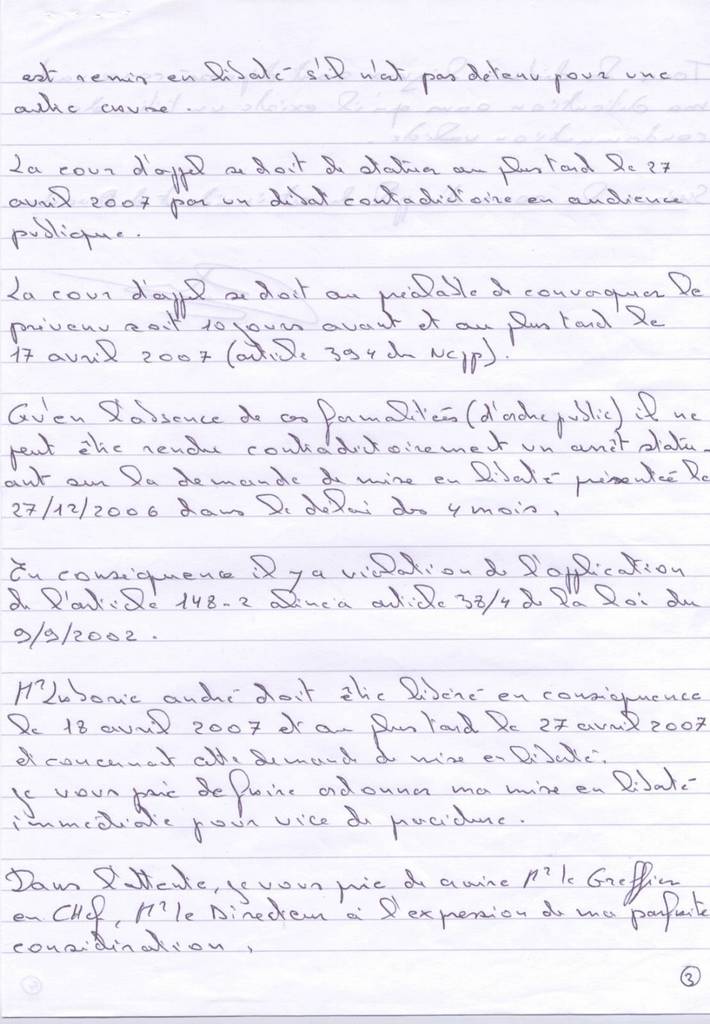 est remis en liberté s'il n'est pas détenu pour une
autre cause.
La cour d'appel se doit de statuer au plus tard le 27
avril 2007 par un débat contradictoire en audience
publique.
La cour d'appel se doit au préalable de convoquer le
prévenu soit 10 jours avant et au plus tard le
17 avril 2007 (article 394 du Ncpp).
Qu'en l'absence de ces formalitées (d'ordre public) il ne
peut être rendu contradictoirement un arrêt statu-
ant sur la demande de mise en liberté présentée le
27/12/2006 dans le délai des 4 mois.
En conséquence il y a violation de l'application
de l'article 148-2 alinéa article 38/4 de la loi du
9/9/2002.
Mr Laborie andré doit être libéré en conséquence
le 18 avril 2007 et au plus tard le 27 avril 2007
et concernant cette demande de mise en liberté.
Je vous prie de faire ordonner ma mise en liberté
immédiate pour vice de procédure.
Dans l'attente, je vous prie de croire Mr le Greffier
en Chef, Mr le Directeur à l'expression de ma parfaite
considération.
3